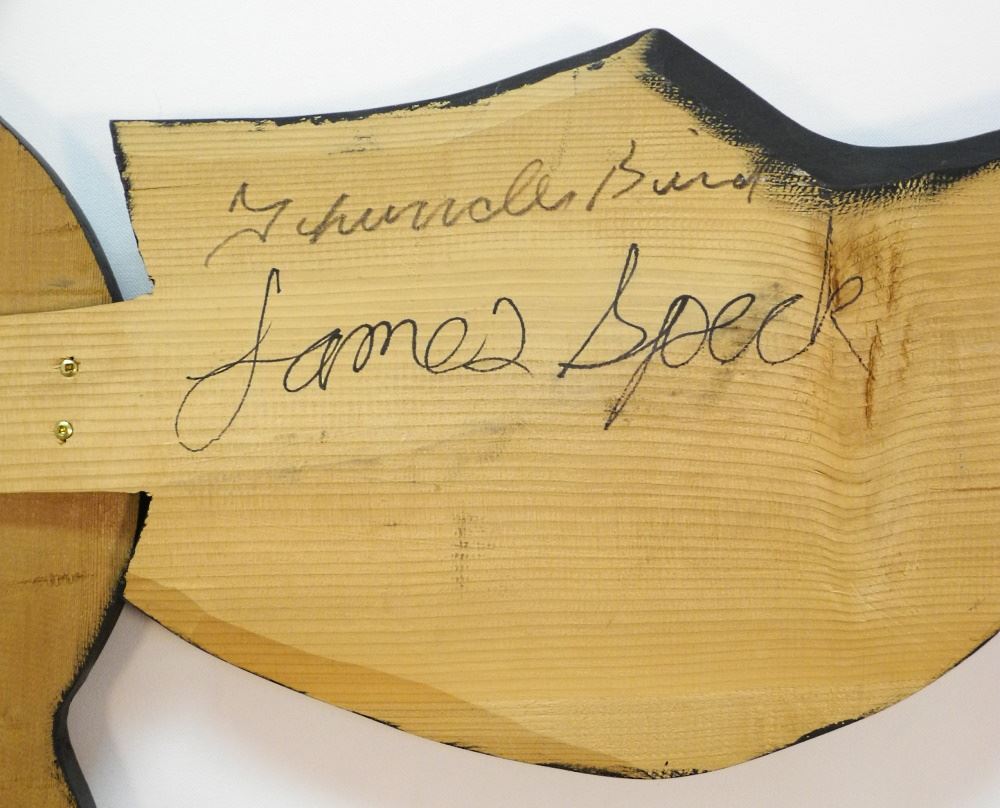 Thunder Bird
James Speck